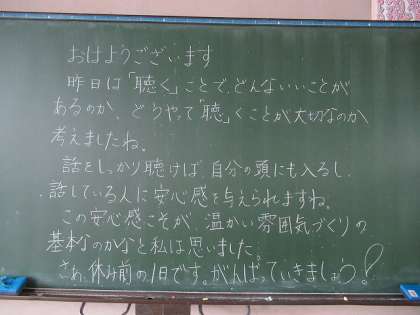 おはようございます
昨日は「聴く」ことで、どんないいことが
あるのか、どうやって「聴」くことが大切なのか
考えましたね。
話をしっかり聴けば、自分の頭にも入るし、
話している人に安心感を与えられますね。
この安心感こそが、温かい雰囲気づくりの
基本なのかなと私は思いました。
さぁ、休み前の1日です。がんばっていきましょう!